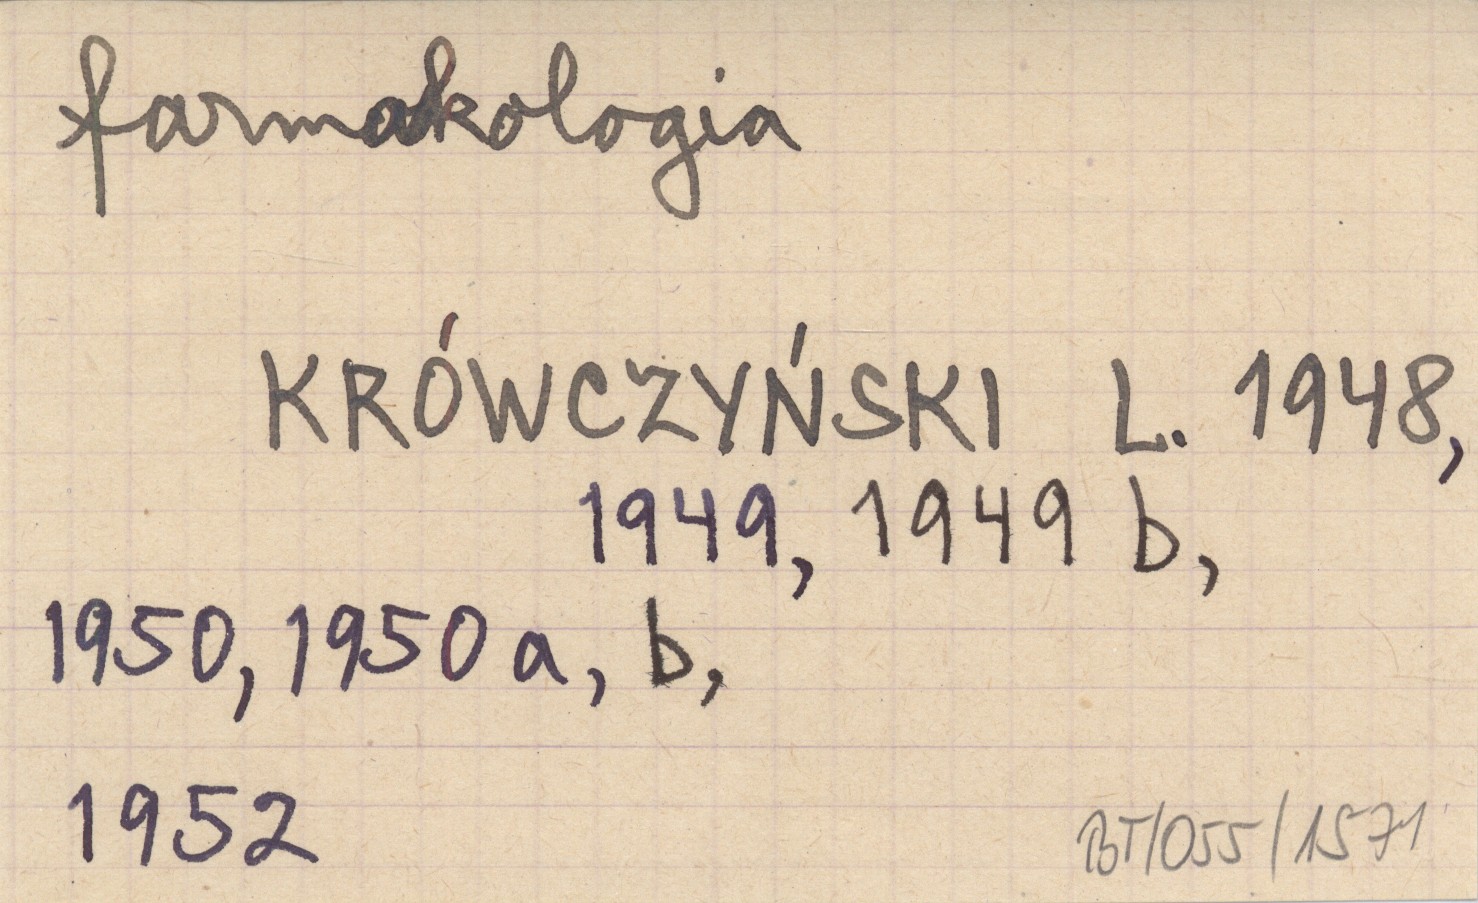 farmakologia
KRÓWCZYŃSKI L. 1948,
1949, 1949 b,
1950, 1950 a, b,
1952
BT/055/1571